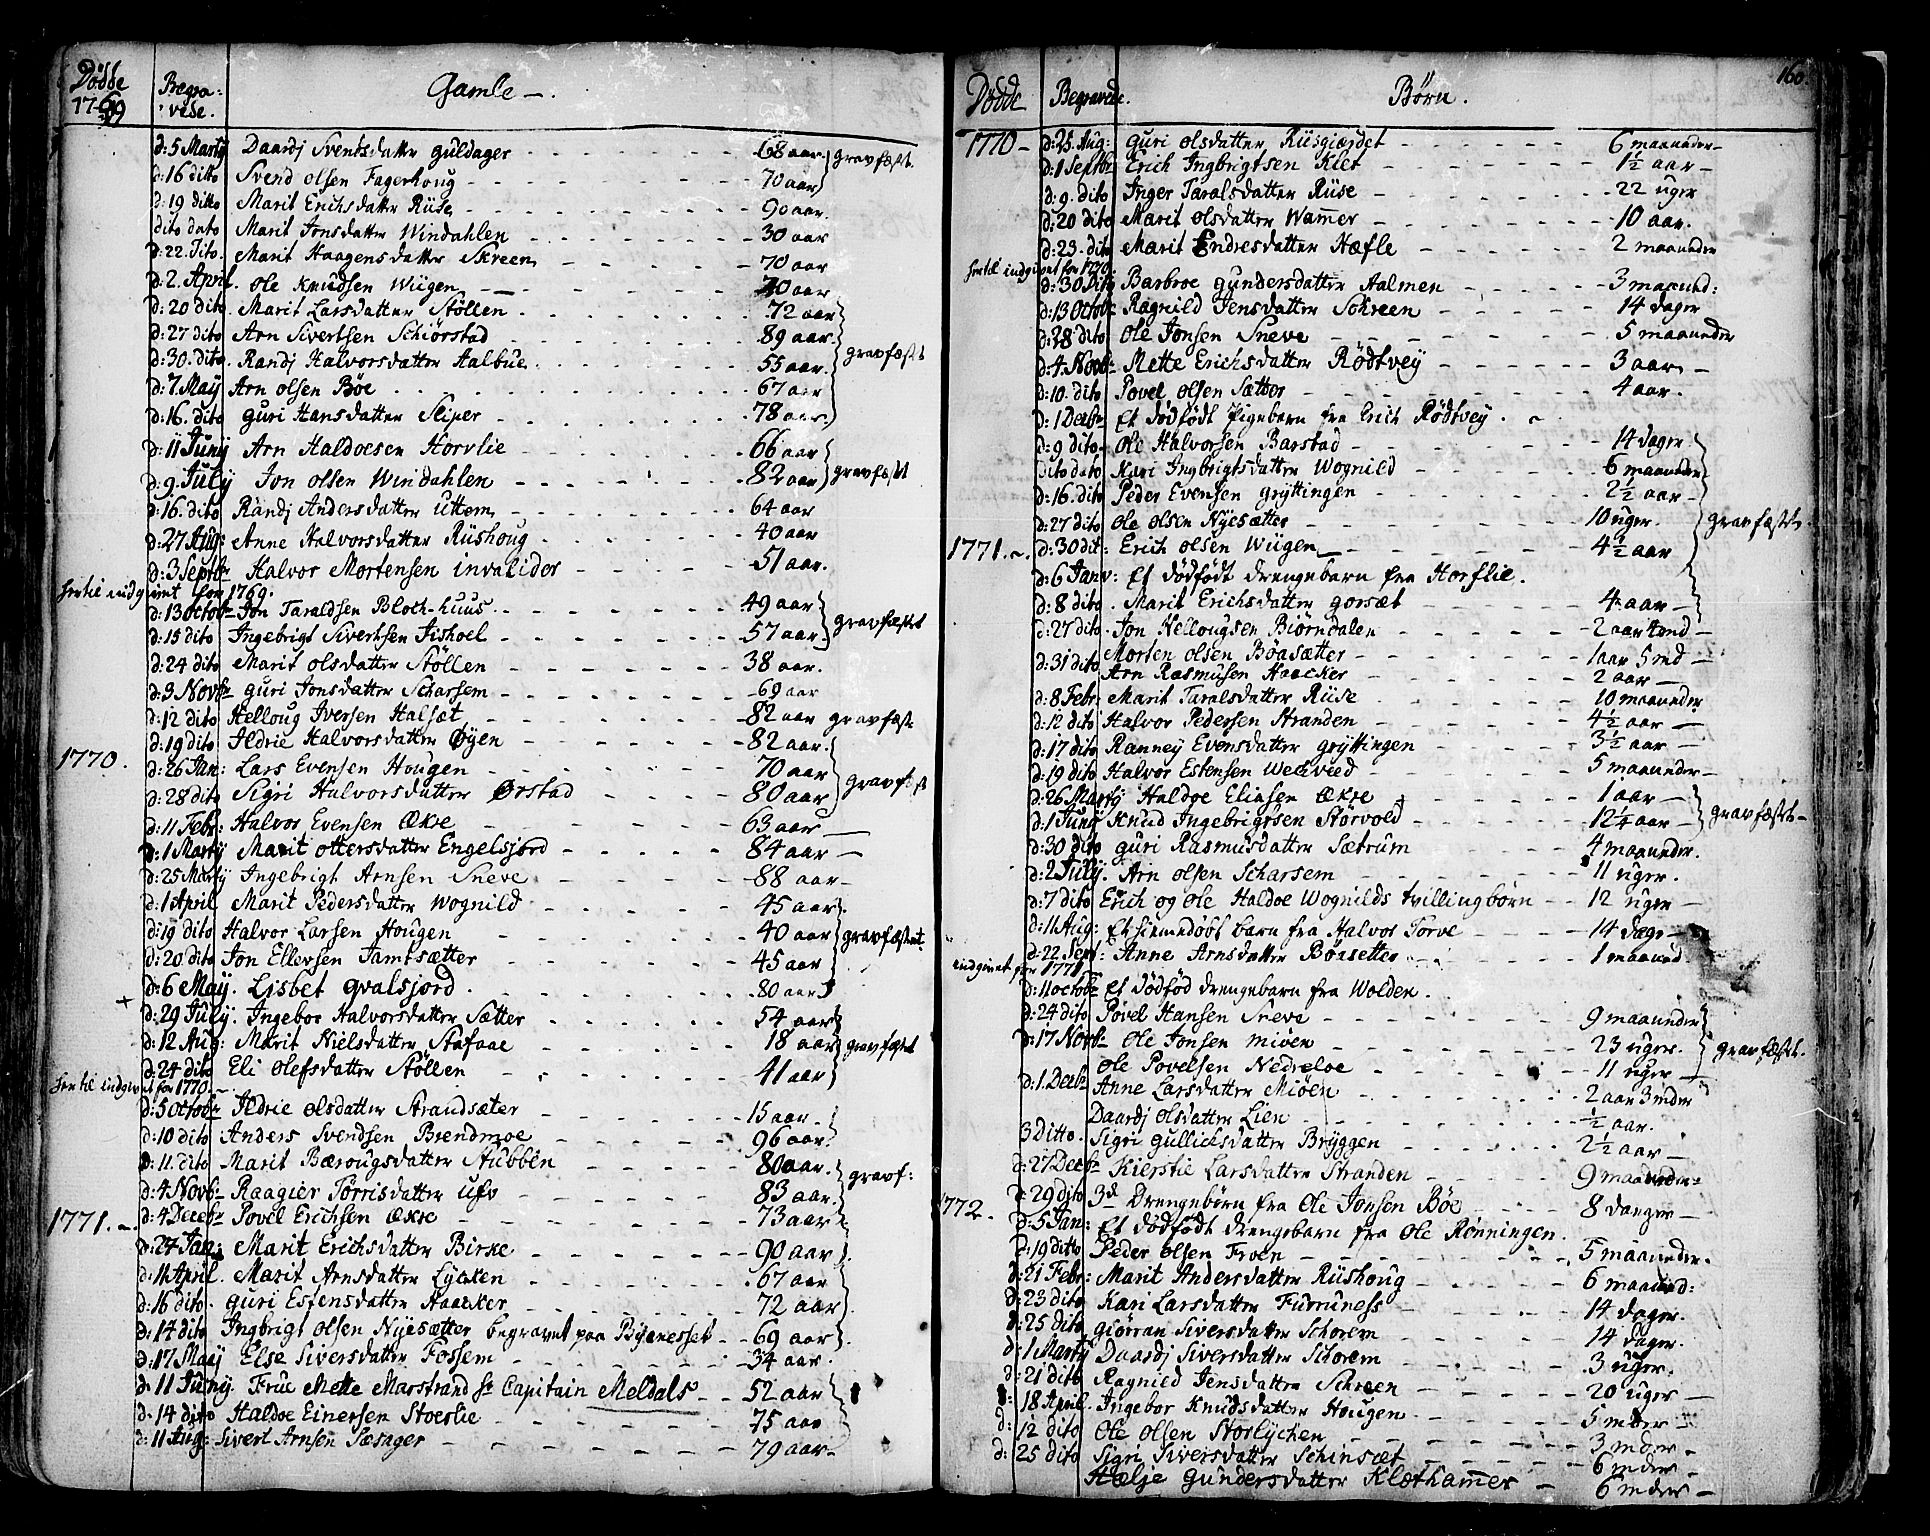 Dödde Begra: Gamle —
1769 vede.
d: 5 Marty Daardj Sventsdatter guldager 68 aar. gravfæst
d: 16 ditto Svend Olsen Fagerhoug 70 aar
d: 19 ditto Marit Erichsdatter Rüse 90 aar.
dito dato Marit Jonsdatter Windahlen 30 aar
d: 22. Dito. Marit Haagensdatter Skreen 70 aar
d: 2. April. Ole Knudsen Wiigen 70 aar
d: 20 dito. Marit Larsdatter Stöllen 72 aar
d: 27 dito Arn Sivertsen Schiörstad 89 aar.
d: 30. dito. Randj Halvorsdatter Aalbue 55 aar. gravfæst
d: 7. May Arn Olsen Böe 67 aar
d: 16. dito Guri Hansdatter Sliper 78 aar
d: 11 Juny Arn Haldoesen Horvlie 66 aar
d: 9. July Jon Olsen Windahlen 82 aar gravfæst
d: 16. dito Randj Andersdatter Uttem 64 aar
d: 27 Aug: Anne Halvorsdatter Rüshoug 40 aar
d: 3 Septbr Halvor Mortensen invalider 51 aar.
her til indgivet for 1769.
d: 13 octobr Jon Taraldsen Bloch-huus 49 aar
d: 15 dito Ingebrigt Sivertsen Fishoel 57 aar gravfæstet
d: 24 dito Marit Olsdatter Stöllen 38 aar.
d: 9 Novbr Guri Jonsdatter Scharsem 69 aar
d: 12 dito Helloug Iversen Halsæt 82 aar gravfæst
d: 19 dito Ildrie Halvorsdatter Øyen 82 aar.
1770. d: 26 Jan: Lars Evensen Hougen 70 aar
d: 28 dito Sigri Halvorsdatter Ørstad 80 aar gravfæst
d: 11 Febr: Halvor Evensen Ækre 63 aar —
d: 1 Marty Marit Ottersdatter Engelsjord 84 aar —
d: 25 Marty Ingebrigt Arnsen Sneve 88 aar —
d: 1 April Marit Pedersdatter Wognild 45 aar
d: 19 dito Halvor Larsen Hougen 40 aar gravfæstet
d: 20 dito Jon Ellevsen Jamtsætter 45 aar
d: 6 May. Lisbet Qvalsjord. 80 aar
+ d: 29 July. Ingebor Halvorsdatter Sætter 54 aar
d: 12 Aug: Marit Nielsdatter Stafaae 18 aar gravfæstet
d: 24 dito Eli Olefsdatter Stöllen 41 aar
her til indgivet for 1770.
d: 5 Octobr Ildrie Olsdatter Strandsæter 15 aar.
d: 10 dito Anders Svendsen Brendmoe 96 aar
d: 11. dito Marit Bærougsdatter Stubben 80 aar. gravf:
d: 4 Novbr Raagier Torrisdatter Ufs 83 aar.
1771. d: 4 Decebr Povel Erichsen Ækre 73 aar
d: 27 Jan: Marit Erichsdatter Birke 90 aar
d: 11 April. Marit Arnsdatter Lycken 67 aar
d: 16 dito. Guri Estensdatter Haacker 72 aar
d: 14 dito Ingbrigt Olsen Nyesætter begravet paa Bynesset 69 aar
d: 17 May Else Siversdatter Fossem 34 aar.
d: 11 Juny. Frue Mette Marstrand Sr Capitain Meldals 52 aar
d: 14 dito Haldoe Einersen Stoerlie 75 aar
d: 11 Aug: Sivert Arnsen Sæsager 79 aar
160
Dödde Begravede. Börn.
1770 d: 25 Aug: Guri Olsdatter Rüsgierdet 6 maaneder
d: 1 Septbr Erich Ingbrigtsen Kiet 1½ aar
d: 9. dito Inger Taralsdatter Rüse 22 uger
d: 20 dito Marit Olsdatter Wamer 10 aar.
d: 23. dito Marit Endresdatter Hæfle 2 maaneder
her til indgivet for 1770.
d: 30 Dito Barbroe Gundersdatter Aalmen 3 maaned:
d: 13 Octobr Ragnild Jensdatter Schreen 14 dager
d: 28 dito Ole Jonsen Sneve 5 maaneder
d: 4 Novbr Mette Erichsdatter Rödtvey 3 aar
d: 10. dito Povel Olsen Sætter 4 aar.
d: 1 Decbr Et dödfödt Pigebarn fra Erich Rödtvey.
d: 9 dito Ole Halvorsen Barstad 14 dager
dito dato Kari Ingbrigtsdatter Wognild 6 maaneder
d: 16. dito Peder Evensen Gryttingen 2½ aar
d: 27 dito Ole Olsen Nyesætter 10 uger. gravfæstet.
1771. d: 30 dit: Erich Olsen Wiigen 4½ aar
d: 6 Janv: Et dödfödt drengebarn fra Horflie.
d: 8 dito. Marit Erichsdatter Gorsæt 4 aar
d: 27 dito. Jon Hellougsen Biörndalen 2 aar
d: 31 dito Morten Olsen Böasætter 1 aar 5 md
Arn Rasmusen Haacker 2 aar
d: 8 Febr: Marit Taralsdatter Rüse 10 maaneder
d: 12. dito Halvor Pedersen Stranden 4½ aar
d: 17 dito Ranney Evensdatter Gryttingen 3½ aar
d: 19 dito Halvor Estensen Weckveed 5 maaneder
d: 26 Marty Haldoe Eliasen Ækre 1 aar
d: 1 Juny Knud Ingebrigtsen Storvold 12¼ aar gravfæstet
d: 30 dito Guri Rasmusdatter Sætrum 4 maaneder.
d: 2 July. Arn Olsen Scharsem 11 uger.
d: 7 dito Erich og Ole Haldoe Wognilds tvillingbörn 12 uger
d: 11 Aug: Et hiemedöbt barn fra Halvor Torve 14 dage
d: 22 Sept: Anne Arnsdatter Böasetter 1 maaned
indgivet for 1771
d: 11 octobr Et dödfød drengebarn fra Wolden.
d: 24 dito Povel Hansen Sneve 9 maaneder
d: 17 Novbr Ole Jonsen Miöen 23 uger. gravfæstet.
Ole Povelsen Nedreloe 11 uger
d: 1. Decbr Anne Larsdatter Miöen 2 aar 3 mder
Daardj Olsdatter Lien ½ aar.
3 Ditto. Sigri Gullichsdatter Bryggen 2½ aar
d: 27 Decbr Kierstie Larsdatter Stranden 9 maaneder
d: 29 dito 3de Drengebörn fra Ole Jonsen Böe 8 dager
1772. d: 5 Jan: Et dödfödt drengebarn fra Ole Rönningen.
d: 19 ditto Peder Olsen Froen 5 maaneder.
d: 21 Febr: Marit Andersdatter Rüshoug 6 maaned:
d: 23 dito Kari Larsdatter Furruness 14 dager.
d: 25 dito Giörran Siversdatter Schorem 14 dager.
d: 1 Marty Daardj Siversdatter Schorem 3 uger.
d: 21 dito Ragnild Jensdatter Schreen 20 uger
d: 18 April. Ingebor Knudsdatter Hougen 5 mder
d: 12 dito Ole Olsen Storlychen 3 mder
d: 25 dito Sigri Siversdatter Schinsæt 6 mder
Hælje Gundersdatter Klæthammer 6 mder